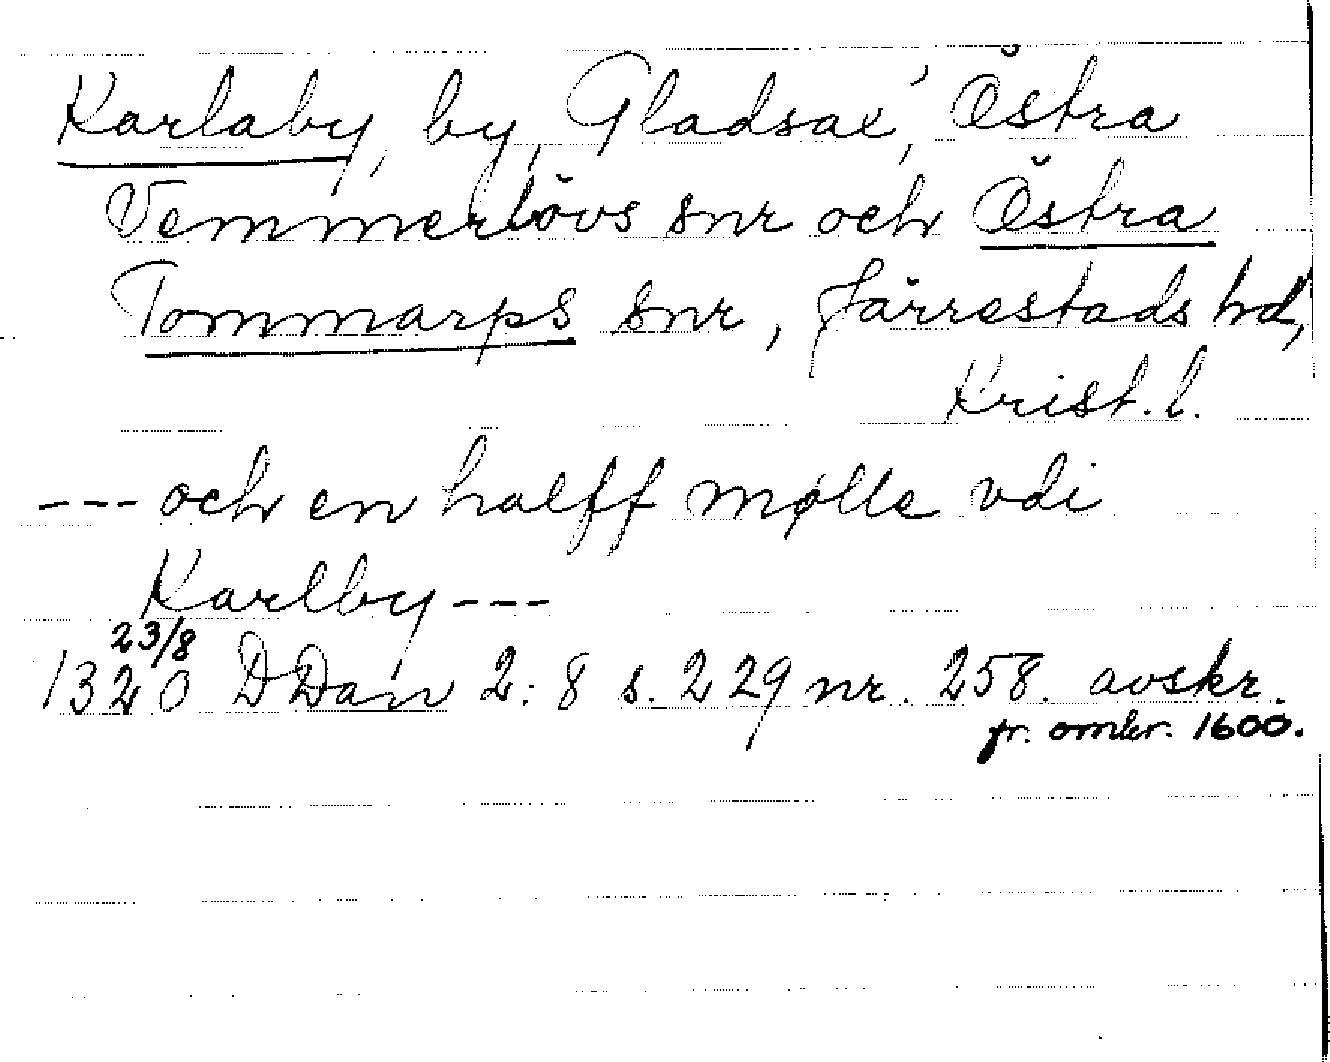 Karlaby, by, Gladsax, Östra
Vemmerlövs snr och Östra
Tommarps snr, Järrestads hd,
Krist. l.
--- och en halff mølle vdi
Karlby ---
23/8
1320 DDan 2:8 s. 229 nr. 258. avskr.
fr. omkr. 1600.